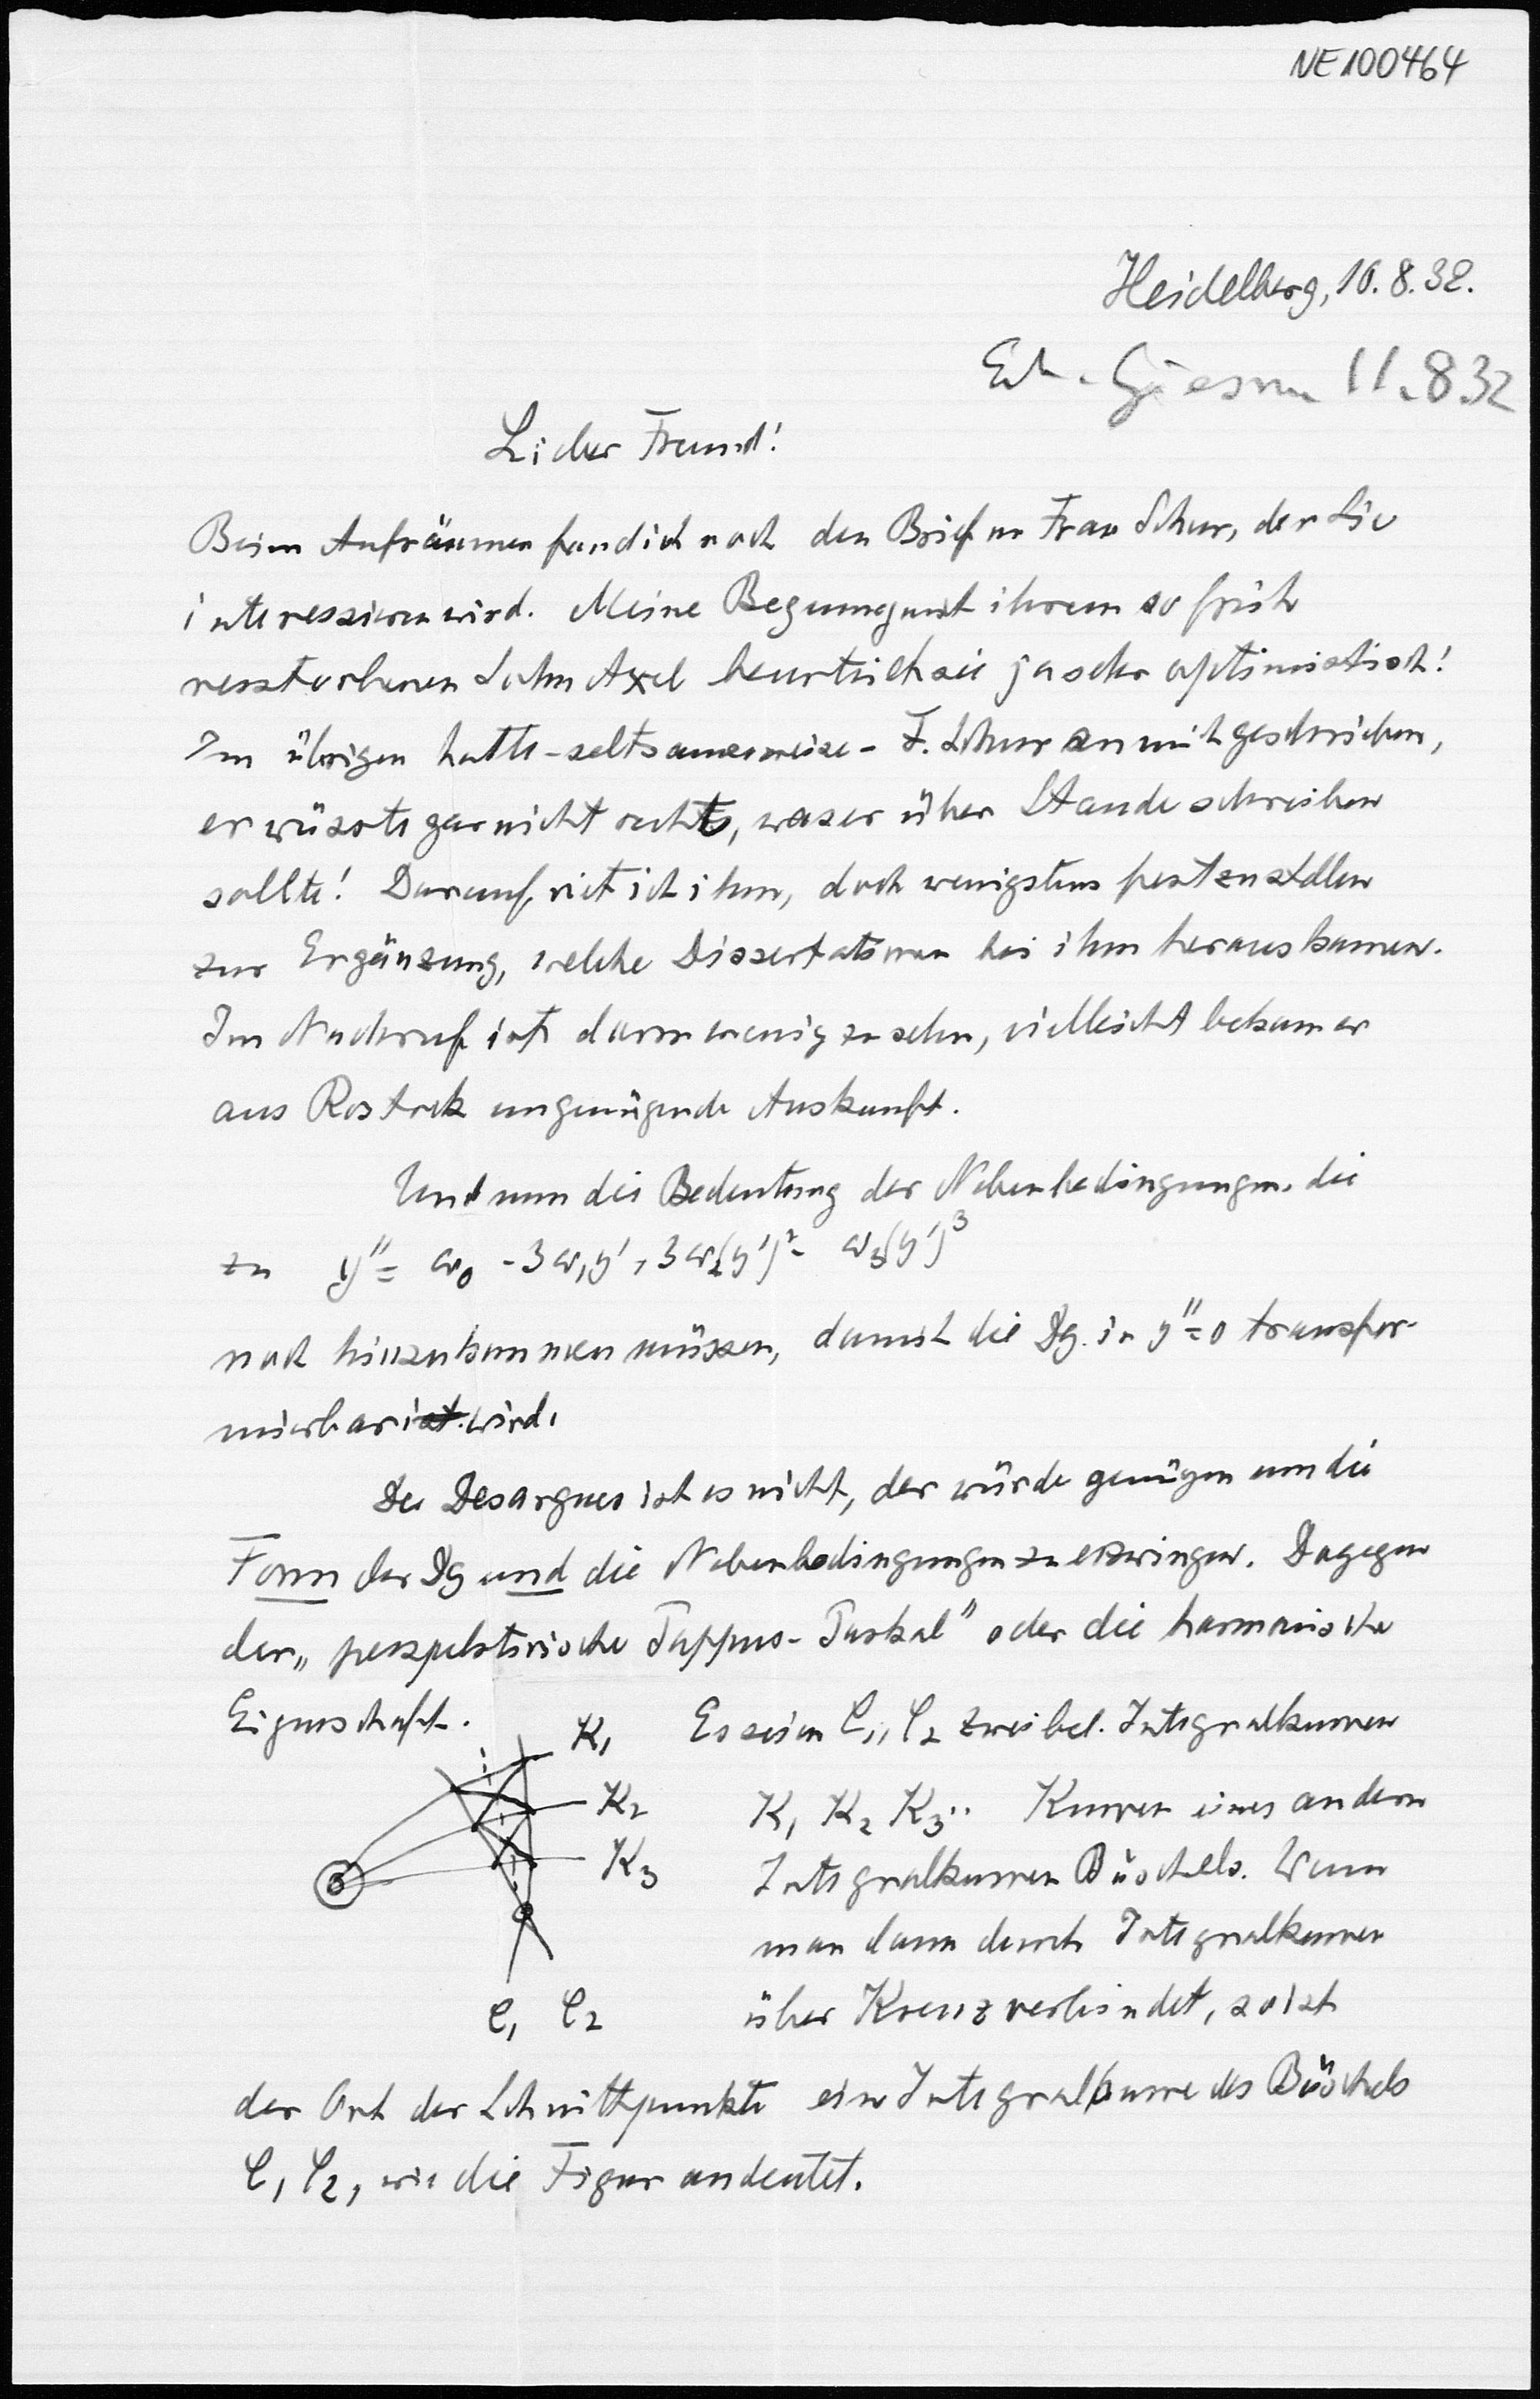 NE100464
Heidelberg, 10.8.32.
11.8.32
Lieber Freund!
Beim Aufräumen fand ich noch den Brief von Frau Schur, der Sie
interessieren wird. Meine Begegnung mit ihrem so früh
verstorbenen Sohn Axel beurteilt sie ja sehr optimistisch!
Im übrigen hatte - seltsamerweise - F. Schur an mich geschrieben,
er wüsste gar nicht recht, was er über Staude schreiben
sollte! Darauf riet ich ihm, doch wenigstens festzustellen
zur Ergänzung, welche Dissertationen bei ihm herauskamen.
Im Nachruf ist davon wenig zu sehn, vielleicht bekam er
aus Rostock ungenügende Auskunft.
Und nun die Bedeutung der Nebenbedingungen, die
zu y'' = ω₀ - 3ω₁y' + 3ω₂(y')² - ω₃(y')³
noch hinzukommen müssen, damit die Dg. in y''=0 transfor-
mierbar ist wird.
Der Desargues ist es nicht, der würde genügen um die
Form der Dg und die Nebenbedingungen zu erzwingen. Dagegen
der „perspektivische Pappus-Paskal" oder die harmonische
Eigenschaft. Es seien C₁, C₂ zwei bel. Integralkurven
K₁
K₂
K₃
K₁ K₂ K₃.. Kurven eines andern
Integralkurven Büschels. Wenn
man dann durch Integralkurven
über Kreuz verbindet, so ist
C₁ C₂
der Ort der Schnittpunkte eine Integralkurve des Büschels
C₁ C₂, wie die Figur andeutet.